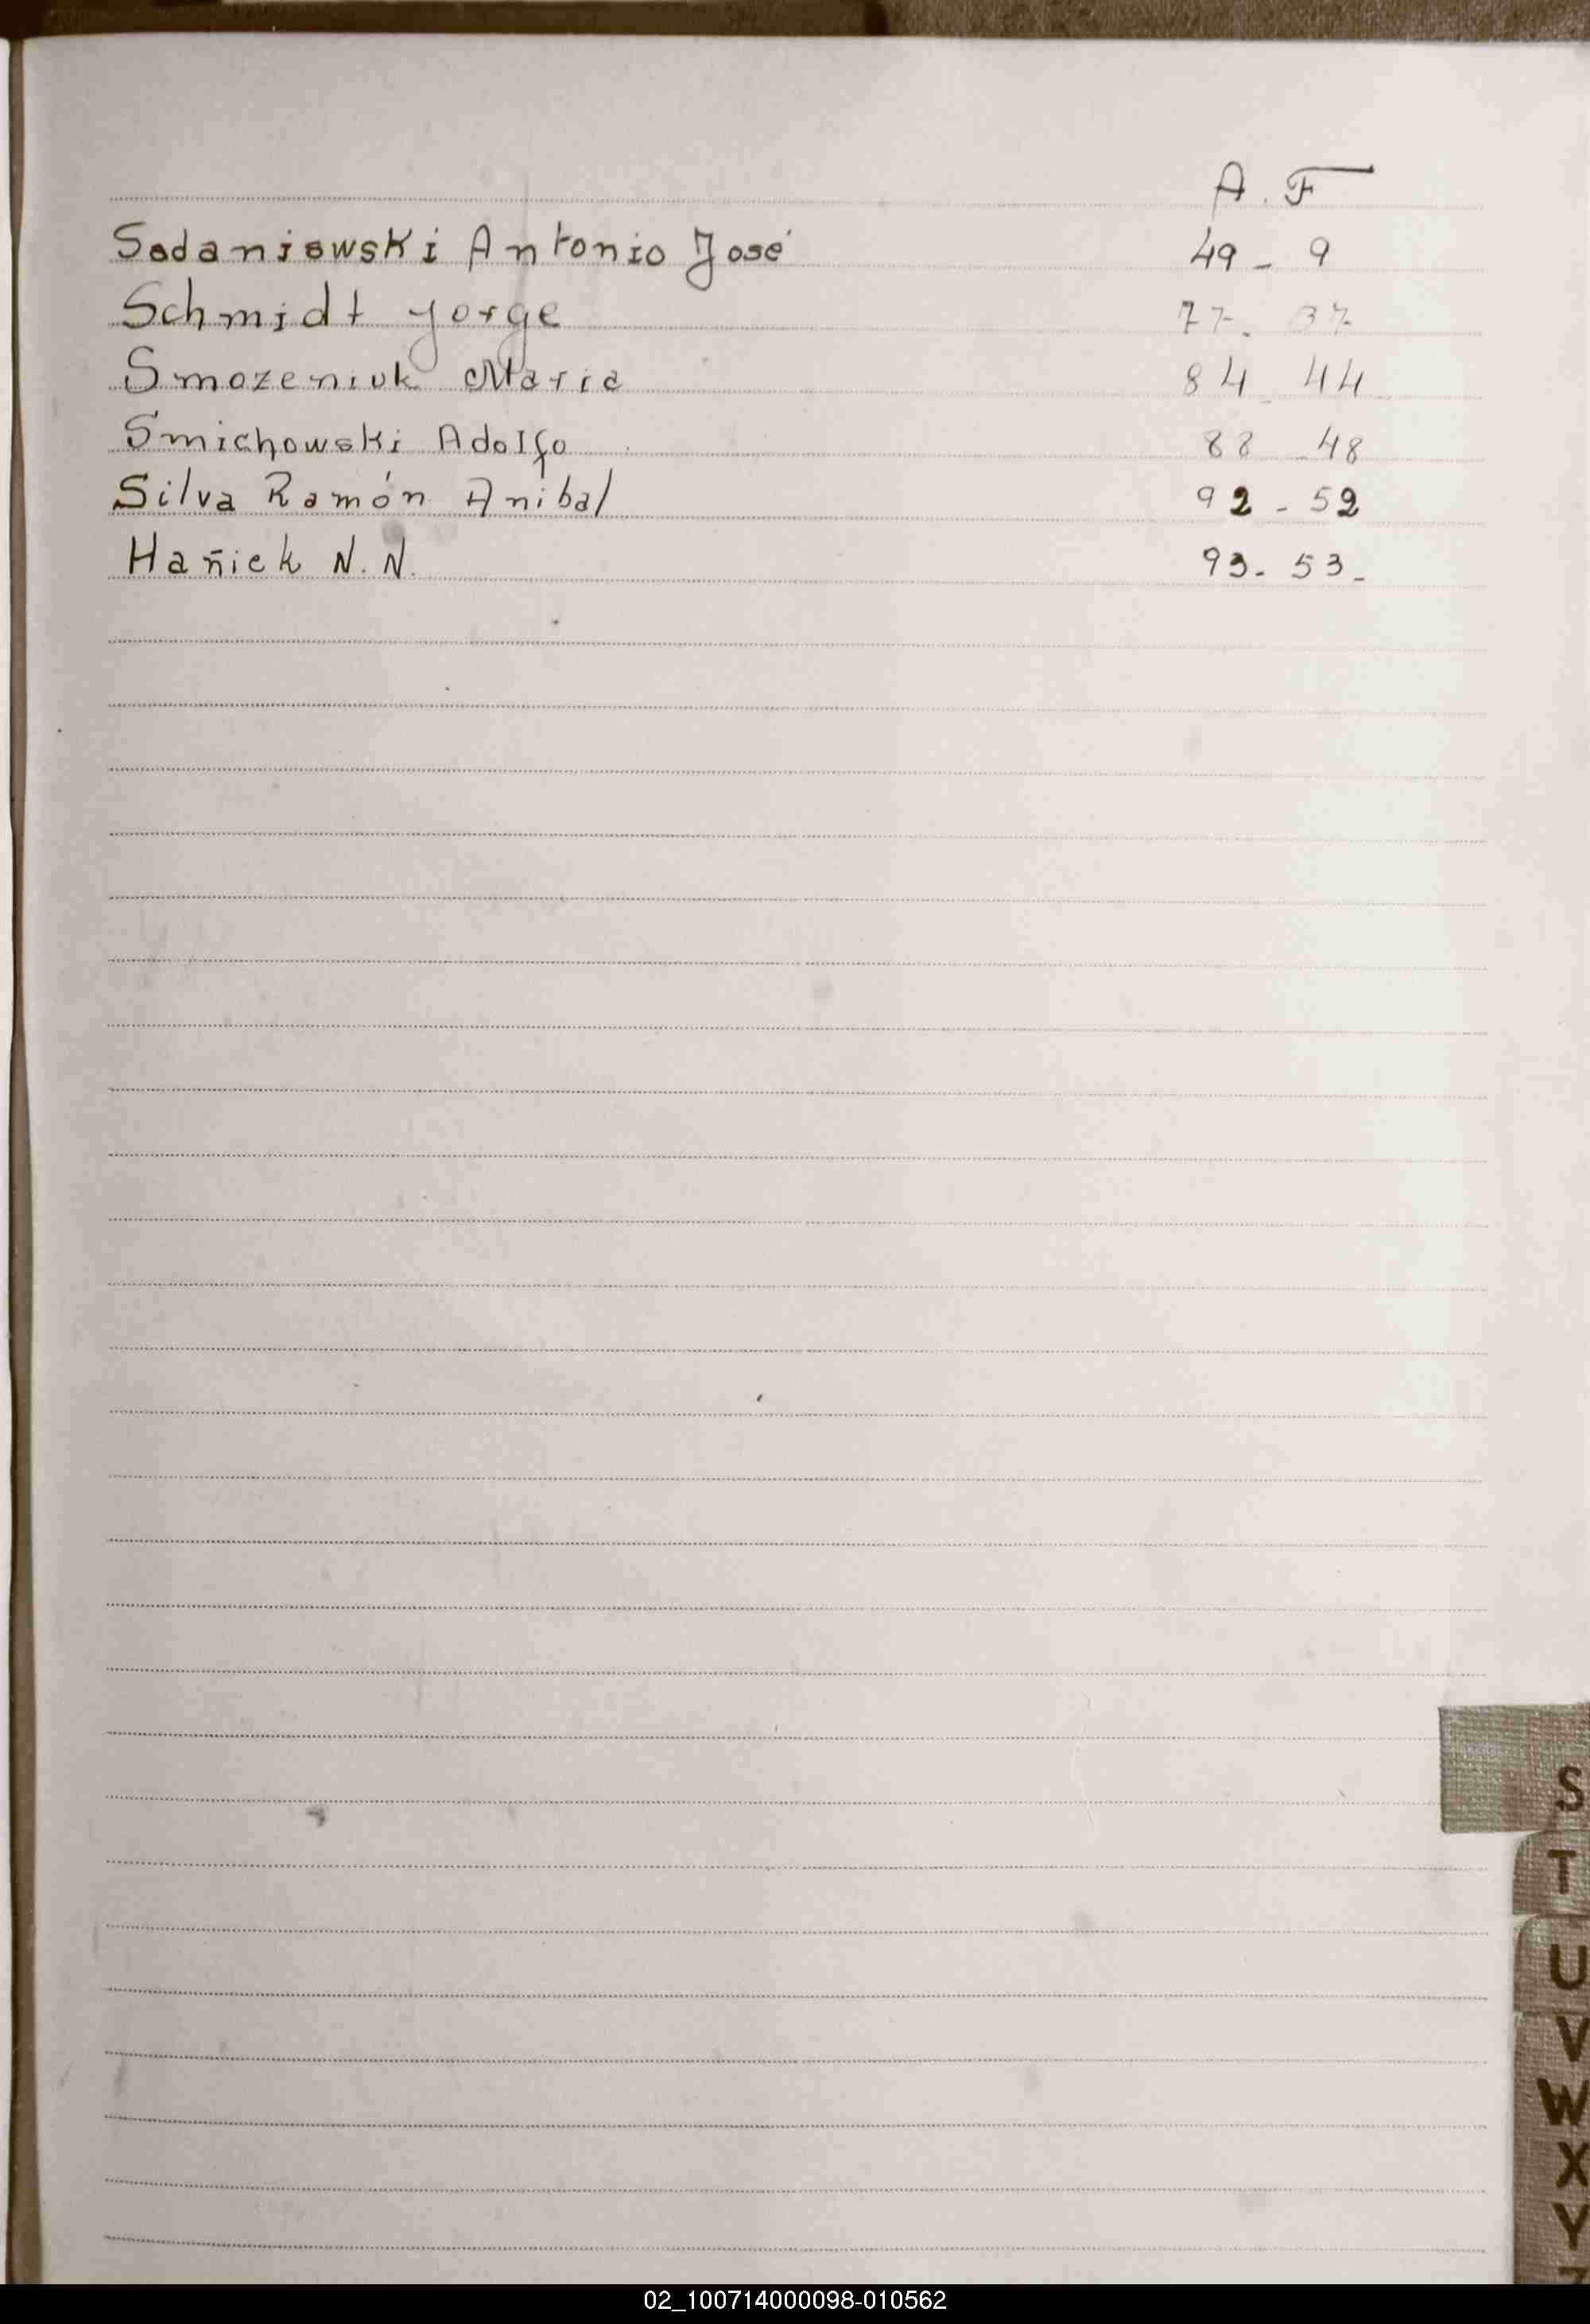 A. F
Sadaniowski Antonio José 49 - 9
Schmidt Jorge 77. 37
Smozeniuk Maria 84 - 44
Smichowski Adolfo 88 - 48
Silva Ramón Anibal 92 - 52
Hañiek N. N. 93 - 53 -
S
T
U
V
W
X
Y
02_100714000098-010562